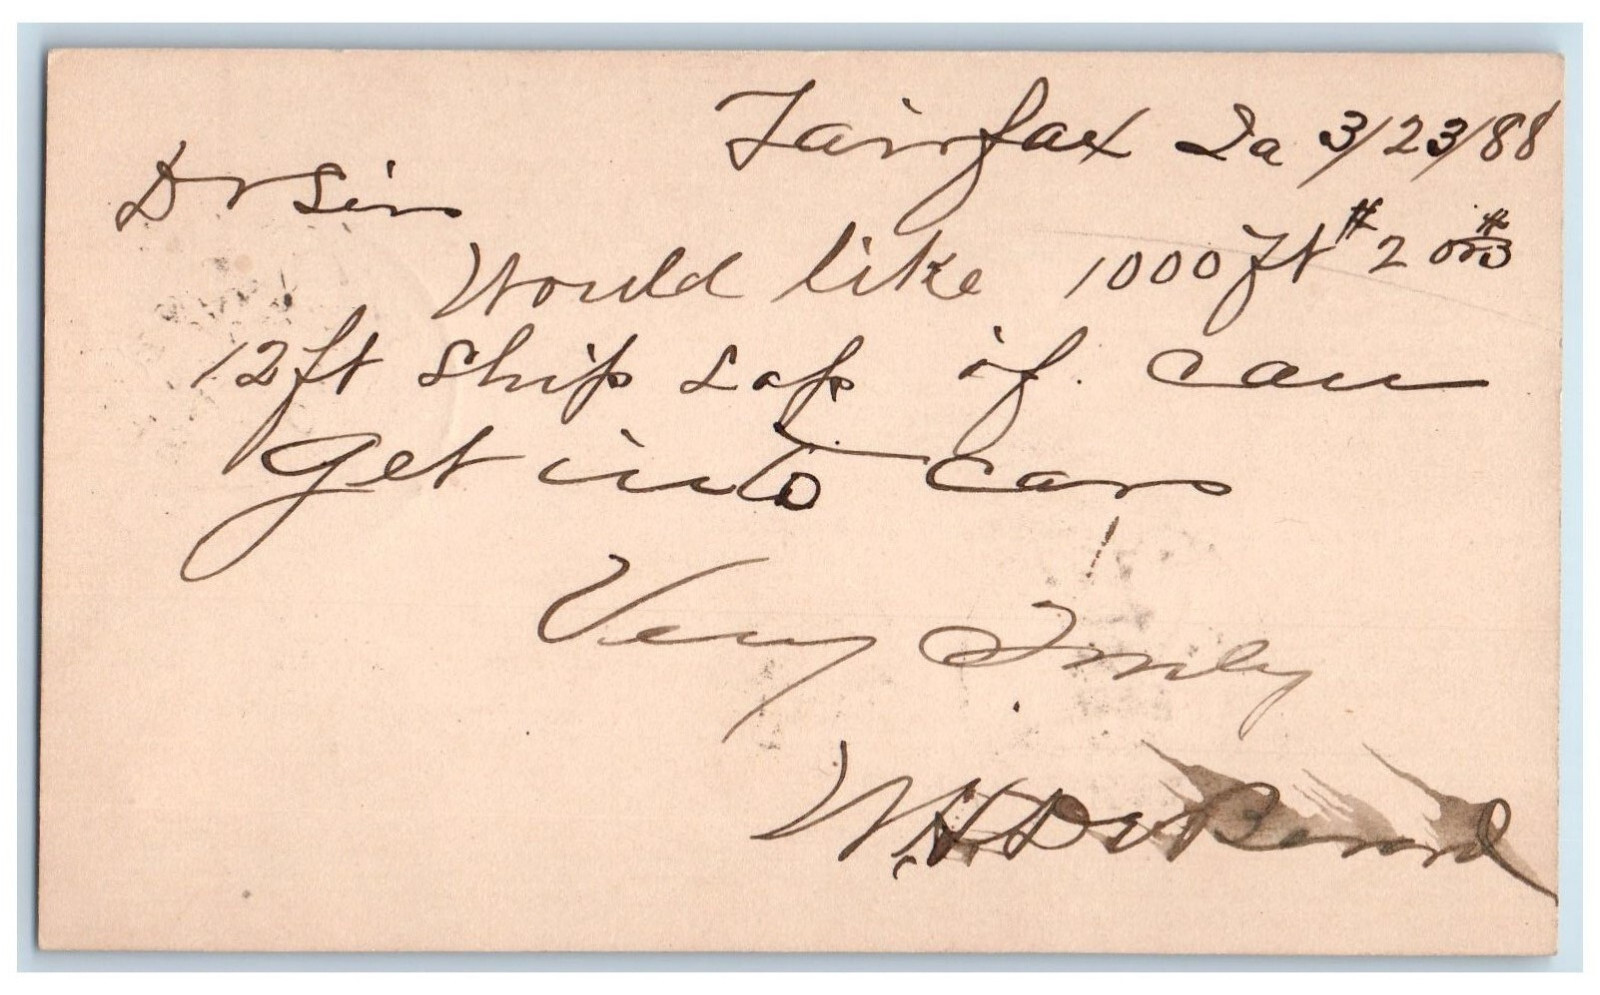 Fairfax Ia 3/23/88
Dr Sir
Would like 1000 ft #2 or #3
12 ft Ship Lap if can
get into cars
Very Truly
W.H.